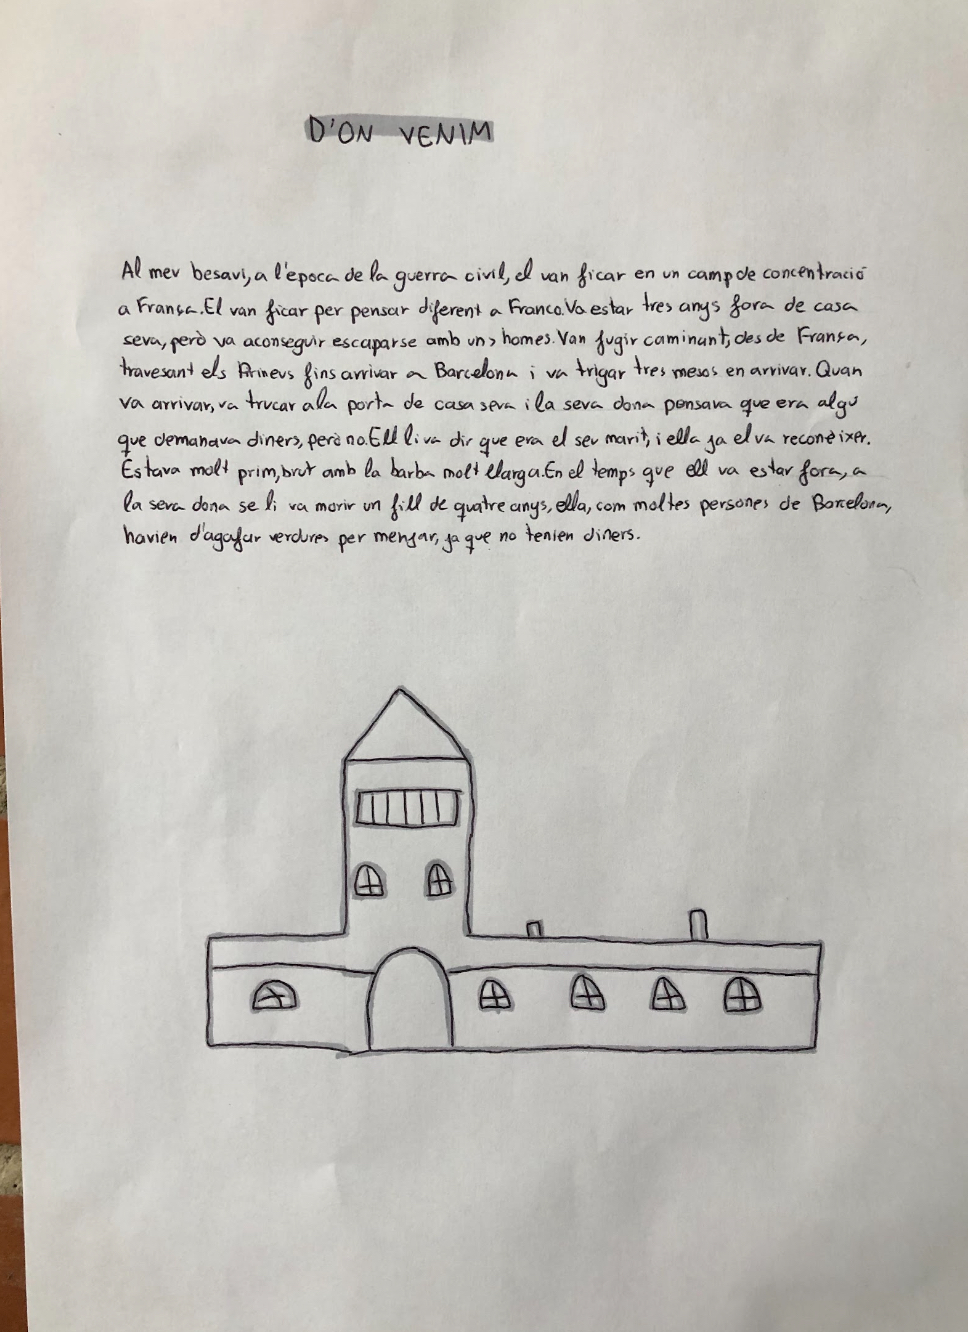 D'ON VENIM
Al meu besavi, a l'època de la guerra civil, el van ficar en un camp de concentració
a França. El van ficar per pensar diferent a Franco. Va estar tres anys fora de casa
seva, però va aconseguir escaparse amb uns homes. Van fugir caminant, des de França,
travesant els Pirineus fins arrivar a Barcelona i va trigar tres mesos en arrivar. Quan
va arrivar, va trucar a la porta de casa seva i la seva dona pensava que era algú
que demanava diners, però no. Ell li va dir que era el seu marit, i ella ja el va reconèixer.
Estava molt prim, brut amb la barba molt llarga. En el temps que ell va estar fora, a
la seva dona se li va morir un fill de quatre anys, ella, com moltes persones de Barcelona,
havien d'agafar verdures per menjar, ja que no tenien diners.